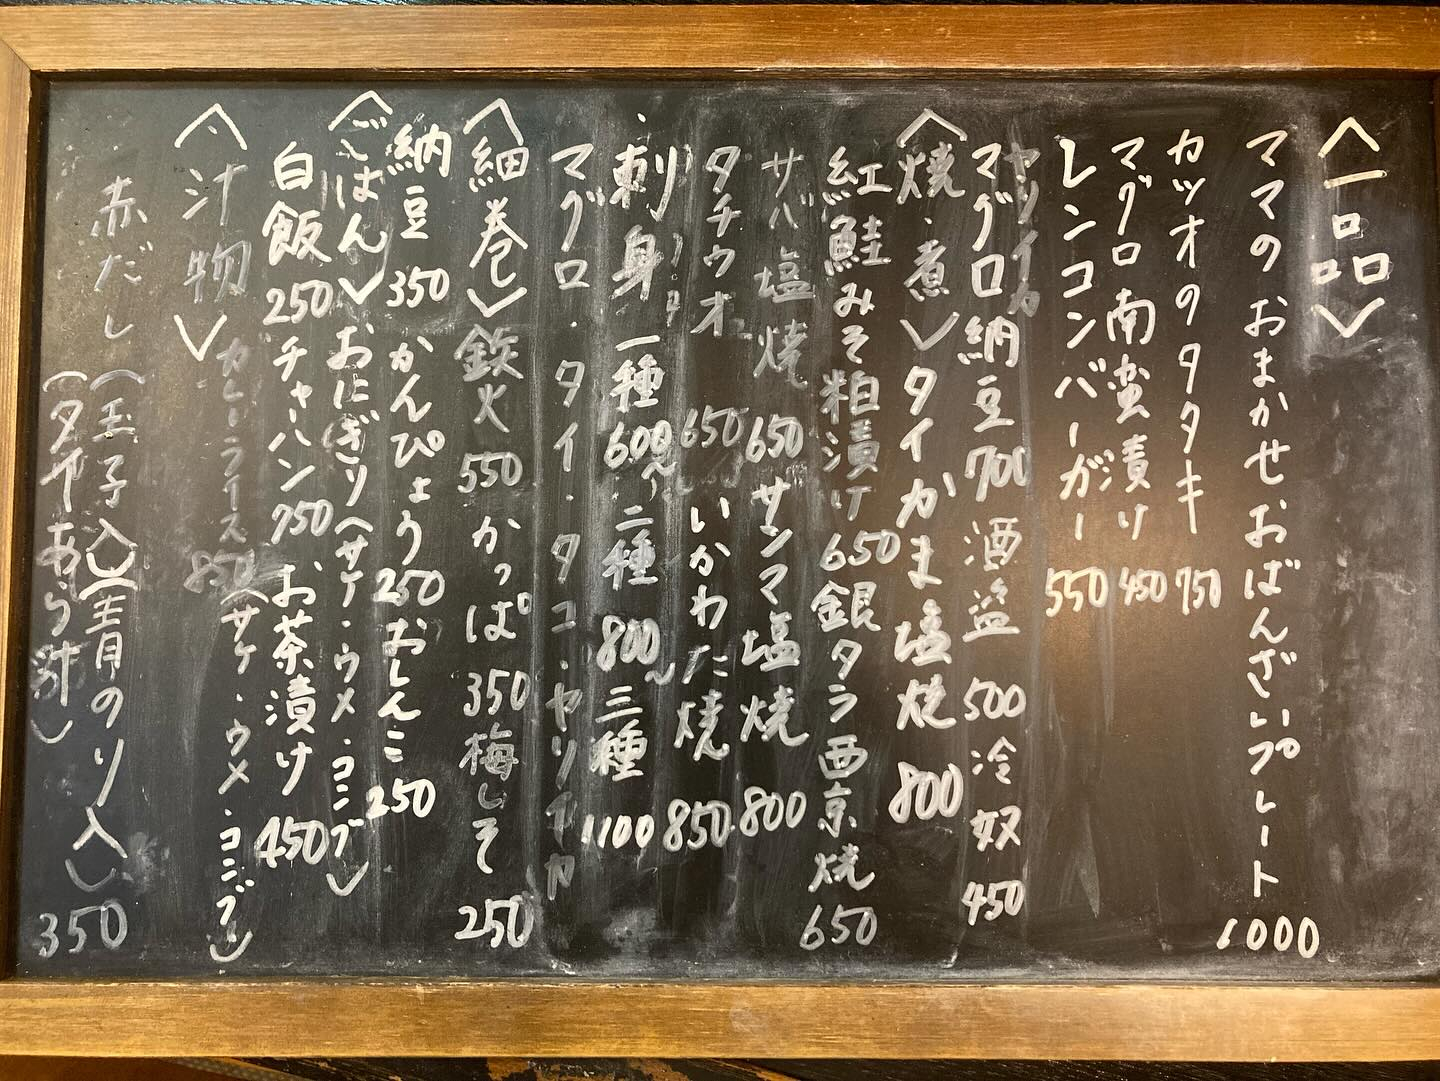 〈一品〉
ママのおまかせおばんざいプレート 1000
カツオのタタキ 750
マグロ南蛮漬け 450
レンコンバーガー 550
ヤリイカ
マグロ納豆 700 酒盗 500 冷奴 450
〈焼・煮〉タイかま塩焼 800
紅鮭みそ粕漬け 650 銀タラ西京焼 650
サバ塩焼 650 サンマ塩焼 800
タチウオ 650〜 いかわた焼 850
・刺身 一種 600〜 二種 800〜 三種 1100
マグロ・タイ・タコ・ヤリイカ
〈細巻〉鉄火 550 かっぱ 350 梅しそ 250
納豆 350 かんぴょう 250 おしんこ 250
〈ごはん〉おにぎり(サケ・ウメ・コンブ)
白飯 250 チャーハン 750 お茶漬け 450
(サケ・ウメ・コンブ)
カレーライス 850
〈汁物〉
赤だし(玉子入)(青のり入) 350
(タイあら汁)